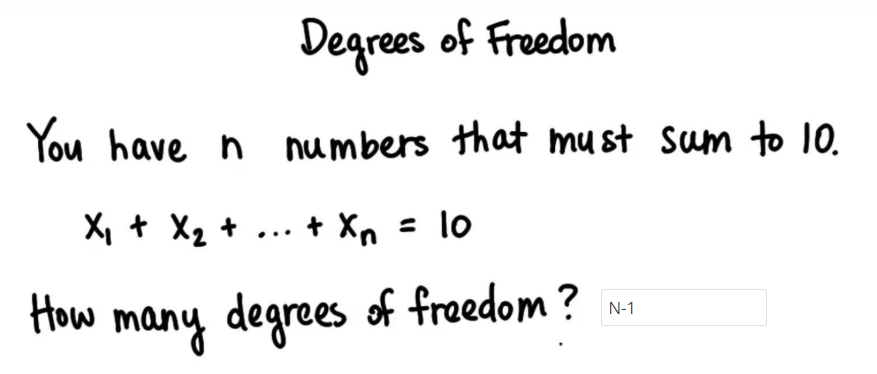 Degrees of Freedom
You have n numbers that must sum to 10.
x₁ + x₂ + ... + xₙ = 10
How many degrees of freedom? N-1